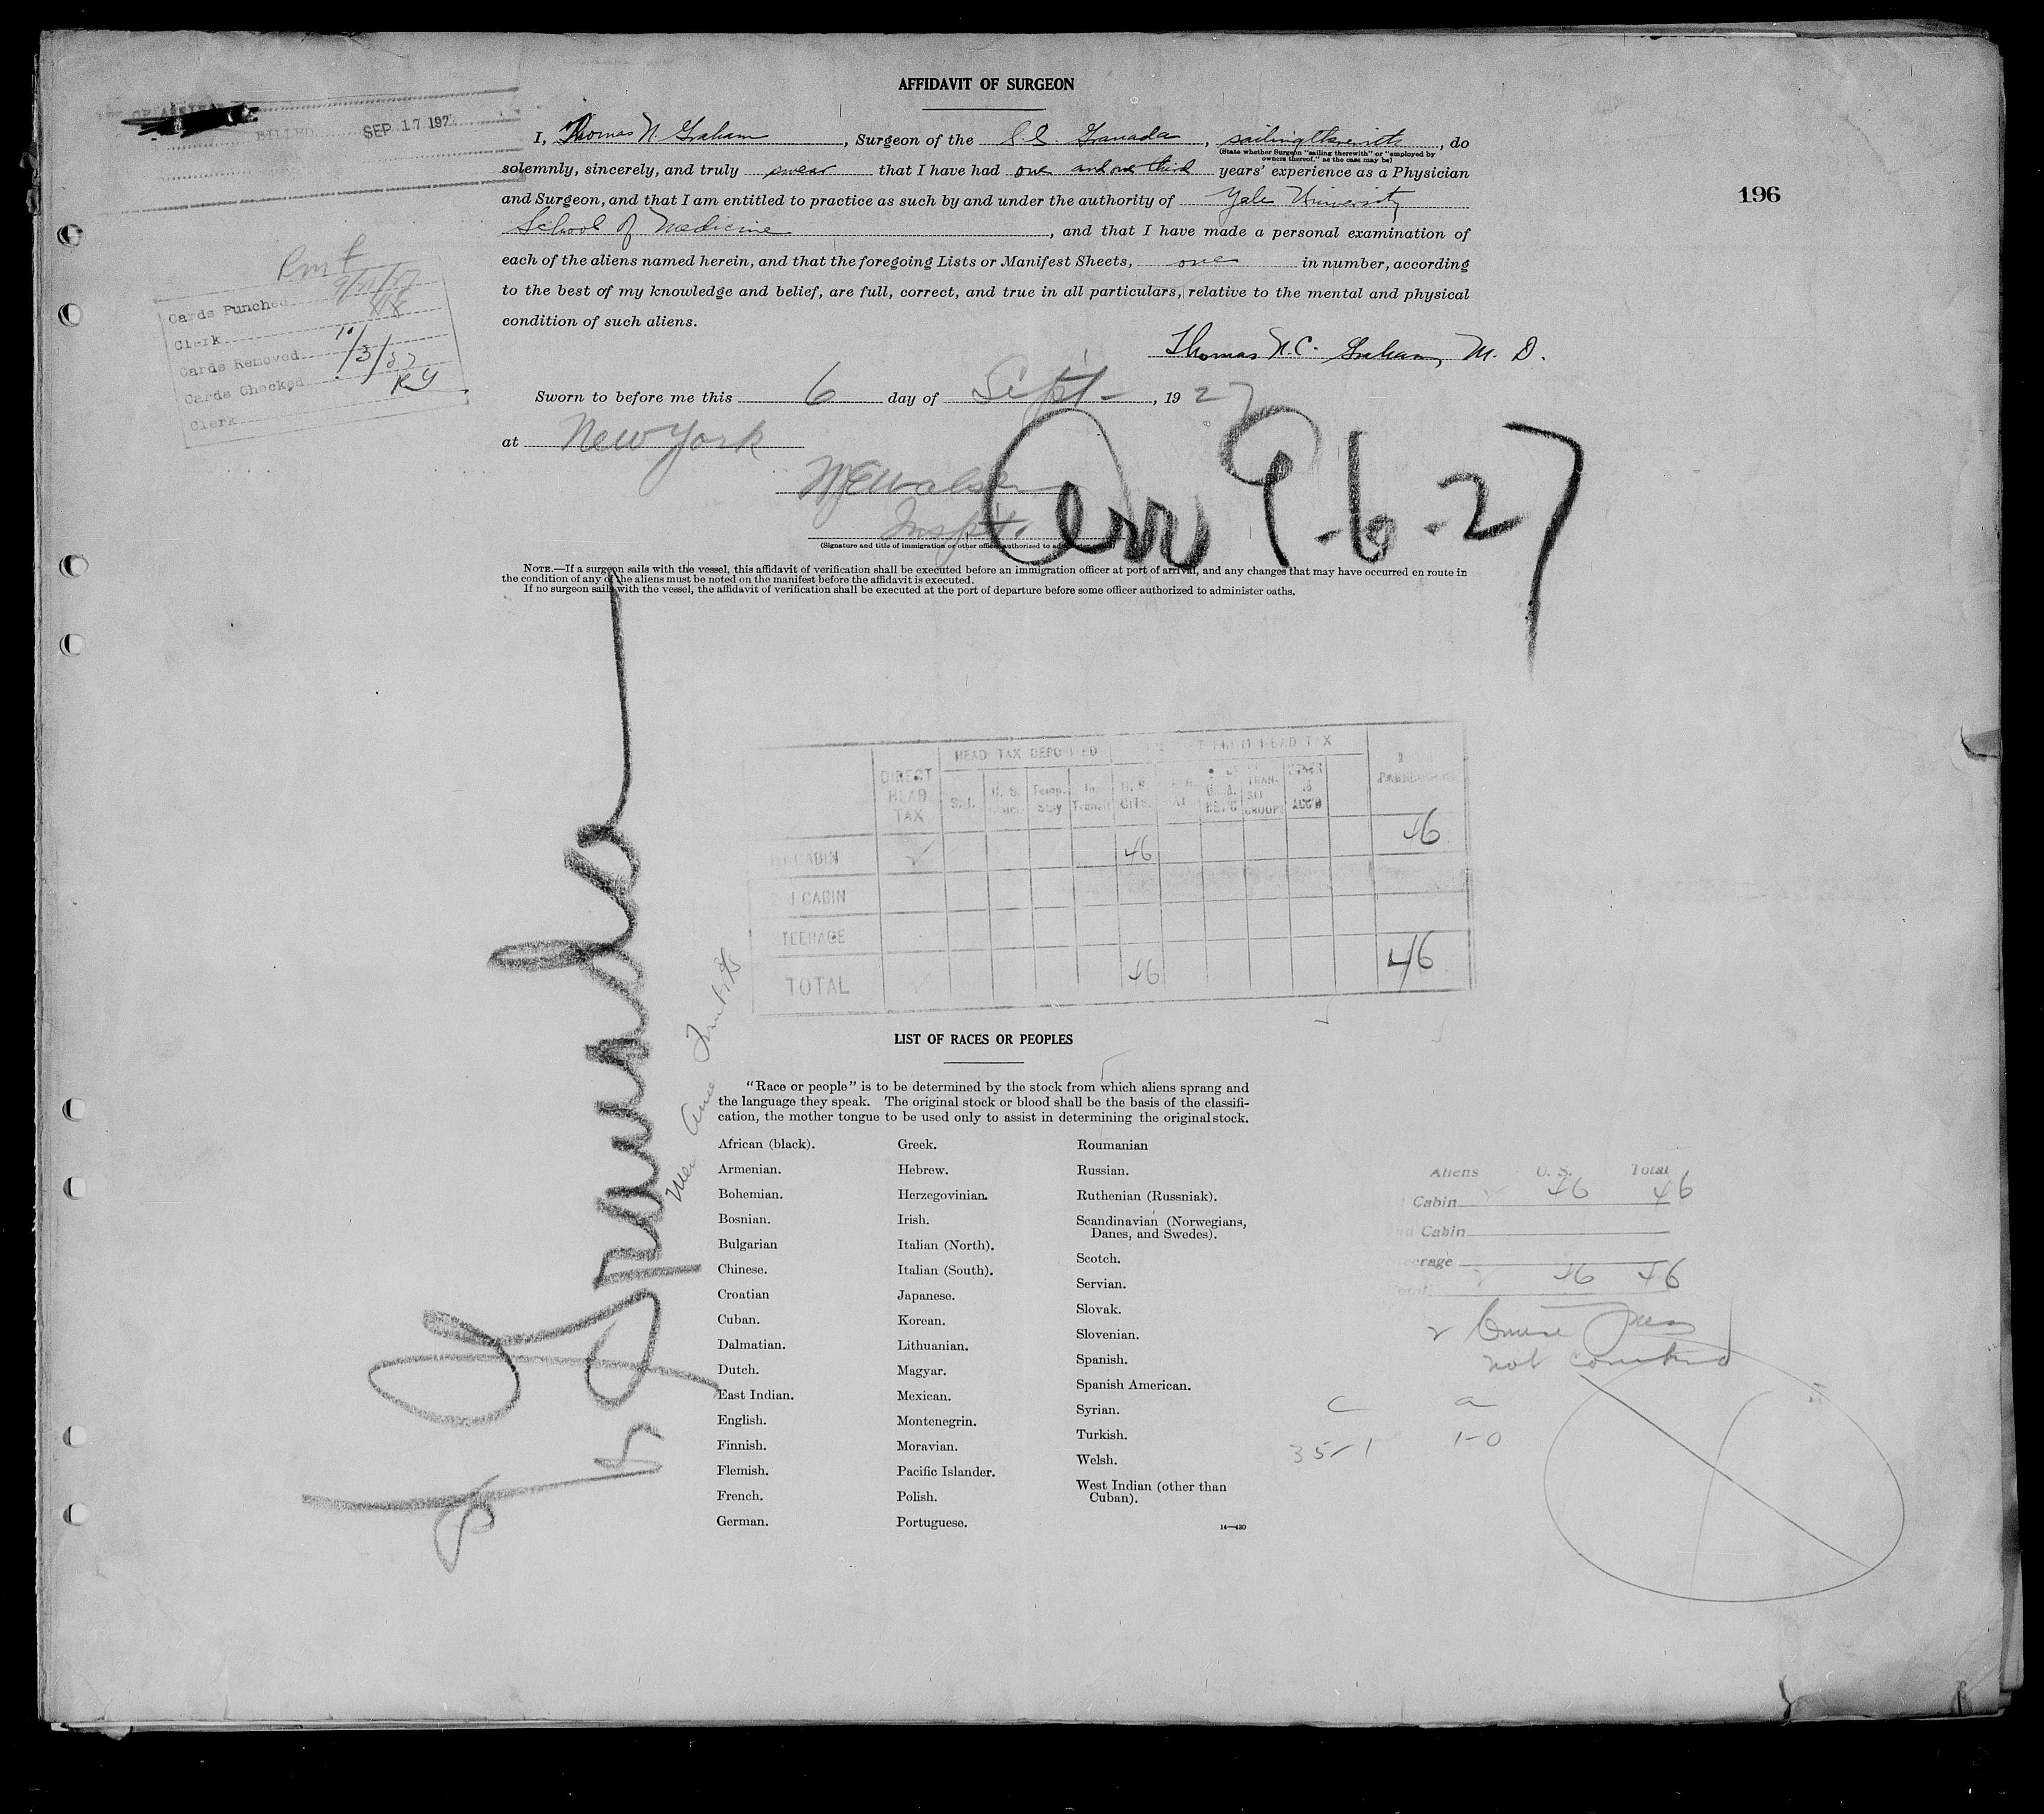 AFFIDAVIT OF SURGEON
196
BILLED SEP 17 192
I, Thomas N. Graham, Surgeon of the S.S. Granada, sailing therewith, do
(State whether Surgeon "sailing therewith" or "employed by
owners thereof," as the case may be)
solemnly, sincerely, and truly swear that I have had one and one third years' experience as a Physician
and Surgeon, and that I am entitled to practice as such by and under the authority of Yale University
School of Medicine, and that I have made a personal examination of
each of the aliens named herein, and that the foregoing Lists or Manifest Sheets, one in number, according
to the best of my knowledge and belief, are full, correct, and true in all particulars, relative to the mental and physical
condition of such aliens.
Thomas N.C. Graham, M. D.
Cards Punched 9/21/27
Clerk
Cards Removed
Cards Checked
Clerk
Sworn to before me this 6 day of Sept-, 1927
at New York
Inspt.
(Signature and title of immigration or other officer authorized to
Arr 9-6-27
NOTE.—If a surgeon sails with the vessel, this affidavit of verification shall be executed before an immigration officer at port of arrival, and any changes that may have occurred en route in
the condition of any of the aliens must be noted on the manifest before the affidavit is executed.
If no surgeon sails with the vessel, the affidavit of verification shall be executed at the port of departure before some officer authorized to administer oaths.
HEAD TAX DEPOSITED FROM HEAD TAX
DIRECT HEAD TAX S.I. U. S. Temp. Stay In Transit U. S. Cits. TRANSIT GROUPS UNDER 16 ACC'D
CABIN 46 46
CABIN
STEERAGE
TOTAL 46 46
LIST OF RACES OR PEOPLES
"Race or people" is to be determined by the stock from which aliens sprang and
the language they speak. The original stock or blood shall be the basis of the classifi-
cation, the mother tongue to be used only to assist in determining the original stock.
African (black).
Armenian.
Bohemian.
Bosnian.
Bulgarian
Chinese.
Croatian
Cuban.
Dalmatian.
Dutch.
East Indian.
English.
Finnish.
Flemish.
French.
German.
Greek.
Hebrew.
Herzegovinian.
Irish.
Italian (North).
Italian (South).
Japanese.
Korean.
Lithuanian.
Magyar.
Mexican.
Montenegrin.
Moravian.
Pacific Islander.
Polish.
Portuguese.
Roumanian
Russian.
Ruthenian (Russniak).
Scandinavian (Norwegians,
Danes, and Swedes).
Scotch.
Servian.
Slovak.
Slovenian.
Spanish.
Spanish American.
Syrian.
Turkish.
Welsh.
West Indian (other than
Cuban).
14—430
Aliens U. S. Total
Cabin 46 46
Cabin
46 46
Cruise Pass
not counted
35-1 1-0